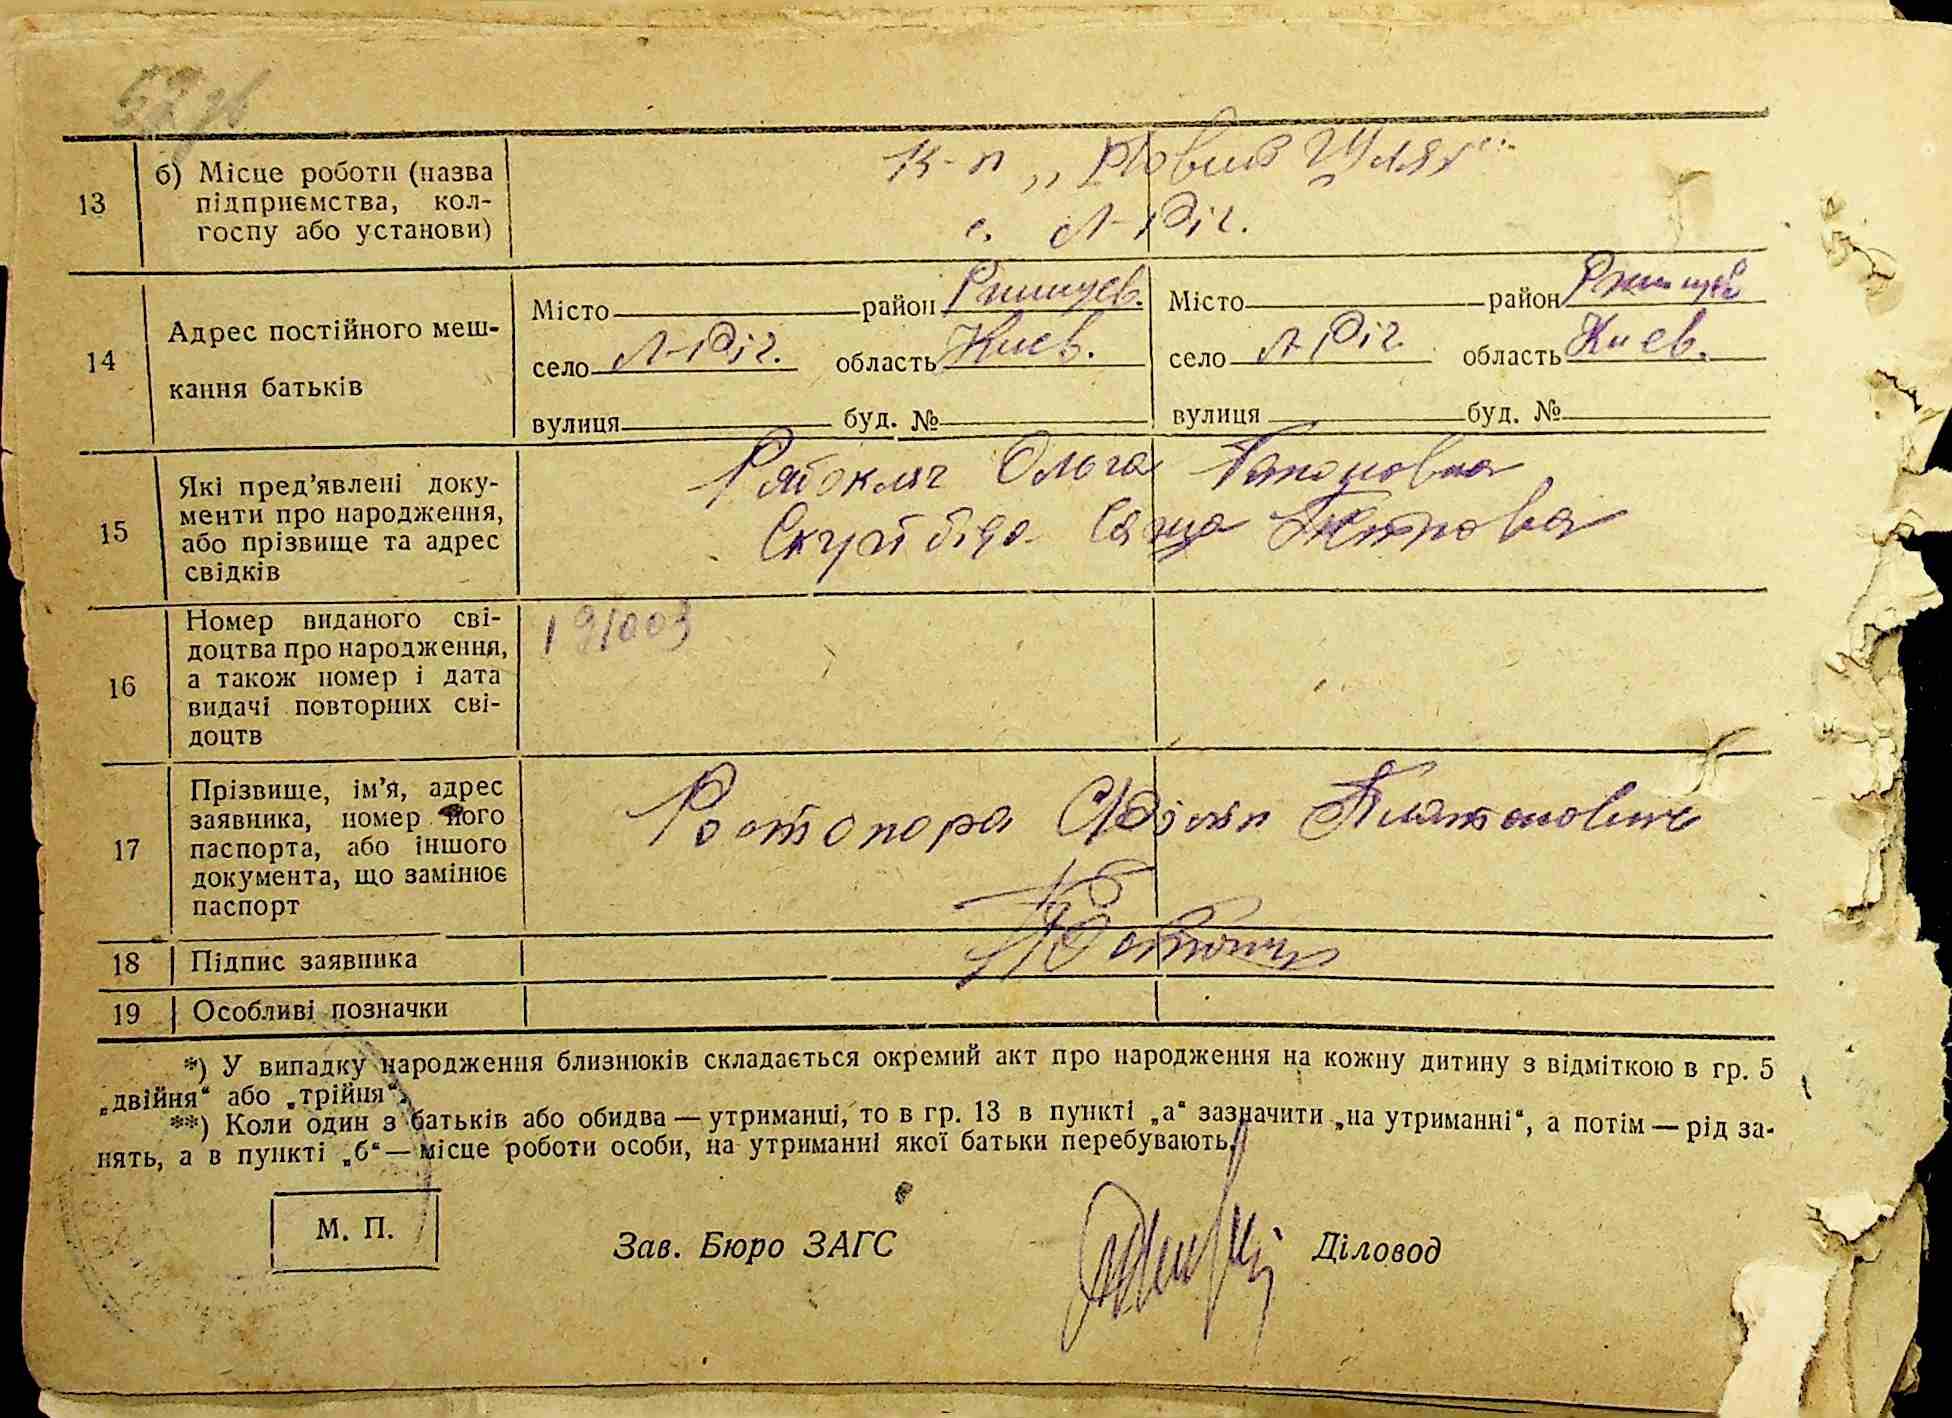 13 б) Місце роботи (назва
підприємства, кол-
госпу або установи)
к-п „Новий Шлях"
с. Л-Річ.
14 Адрес постійного меш-
кання батьків
Місто район Ржищев. Місто район Ржищев
село Л-Річ. область Киев. село Л-Річ. область Киев.
вулиця буд. № вулиця буд. №
15 Які пред'явлені доку-
менти про народження,
або прізвище та адрес
свідків
Рябокляч Ольга
16 Номер виданого сві-
доцтва про народження,
а також номер і дата
видачі повторних сві-
доцтв
191003
17 Прізвище, ім'я, адрес
заявника, номер його
паспорта, або іншого
документа, що замінює
паспорт
Ростопора Платонович
18 Підпис заявника
19 Особливі позначки
*) У випадку народження близнюків складається окремий акт про народження на кожну дитину з відміткою в гр. 5
„двійня“ або „трійня“.
**) Коли один з батьків або обидва — утриманці, то в гр. 13 в пункті „а“ зазначити „на утриманні“, а потім — рід за-
нять, а в пункті „б“ — місце роботи особи, на утриманні якої батьки перебувають.
М. П.
Зав. Бюро ЗАГС Діловод